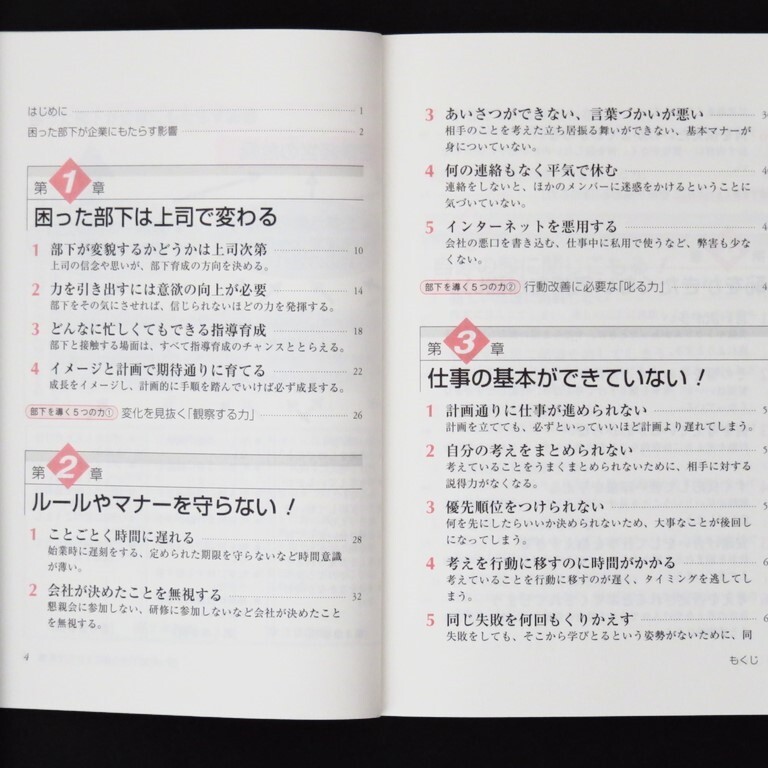 はじめに 1
困った部下が企業にもたらす影響 2
第1章
困った部下は上司で変わる
1 部下が変貌するかどうかは上司次第 10
上司の信念や思いが、部下育成の方向を決める。
2 力を引き出すには意欲の向上が必要 14
部下をその気にさせれば、信じられないほどの力を発揮する。
3 どんなに忙しくてもできる指導育成 18
部下と接触する場面は、すべて指導育成のチャンスととらえる。
4 イメージと計画で期待通りに育てる 22
成長をイメージし、計画的に手順を踏んでいけば必ず成長する。
部下を導く5つの力① 変化を見抜く「観察する力」 26
第2章
ルールやマナーを守らない!
1 ことごとく時間に遅れる 28
始業時に遅刻をする、定められた期限を守らないなど時間意識
が薄い。
2 会社が決めたことを無視する 32
懇親会に参加しない、研修に参加しないなど会社が決めたこと
を無視する。
4
3 あいさつができない、言葉づかいが悪い
相手のことを考えた立ち居振る舞いができない、基本マナーが
身についていない。
4 何の連絡もなく平気で休む
連絡をしないと、ほかのメンバーに迷惑をかけるということに
気づいていない。
5 インターネットを悪用する
会社の悪口を書き込む、仕事中に私用で使うなど、弊害も少な
くない。
部下を導く5つの力② 行動改善に必要な「叱る力」
第3章
仕事の基本ができていない!
1 計画通りに仕事が進められない
計画を立てても、必ずといっていいほど計画より遅れてしまう。
2 自分の考えをまとめられない
考えていることをうまくまとめられないために、相手に対する
説得力がなくなる。
3 優先順位をつけられない
何を先にしたらいいか決められないため、大事なことが後回し
になってしまう。
4 考えを行動に移すのに時間がかかる
考えていることを行動に移すのが遅く、タイミングを逃してし
まう。
5 同じ失敗を何回もくりかえす
失敗をしても、そこから学びとるという姿勢がないために、同
もくじ